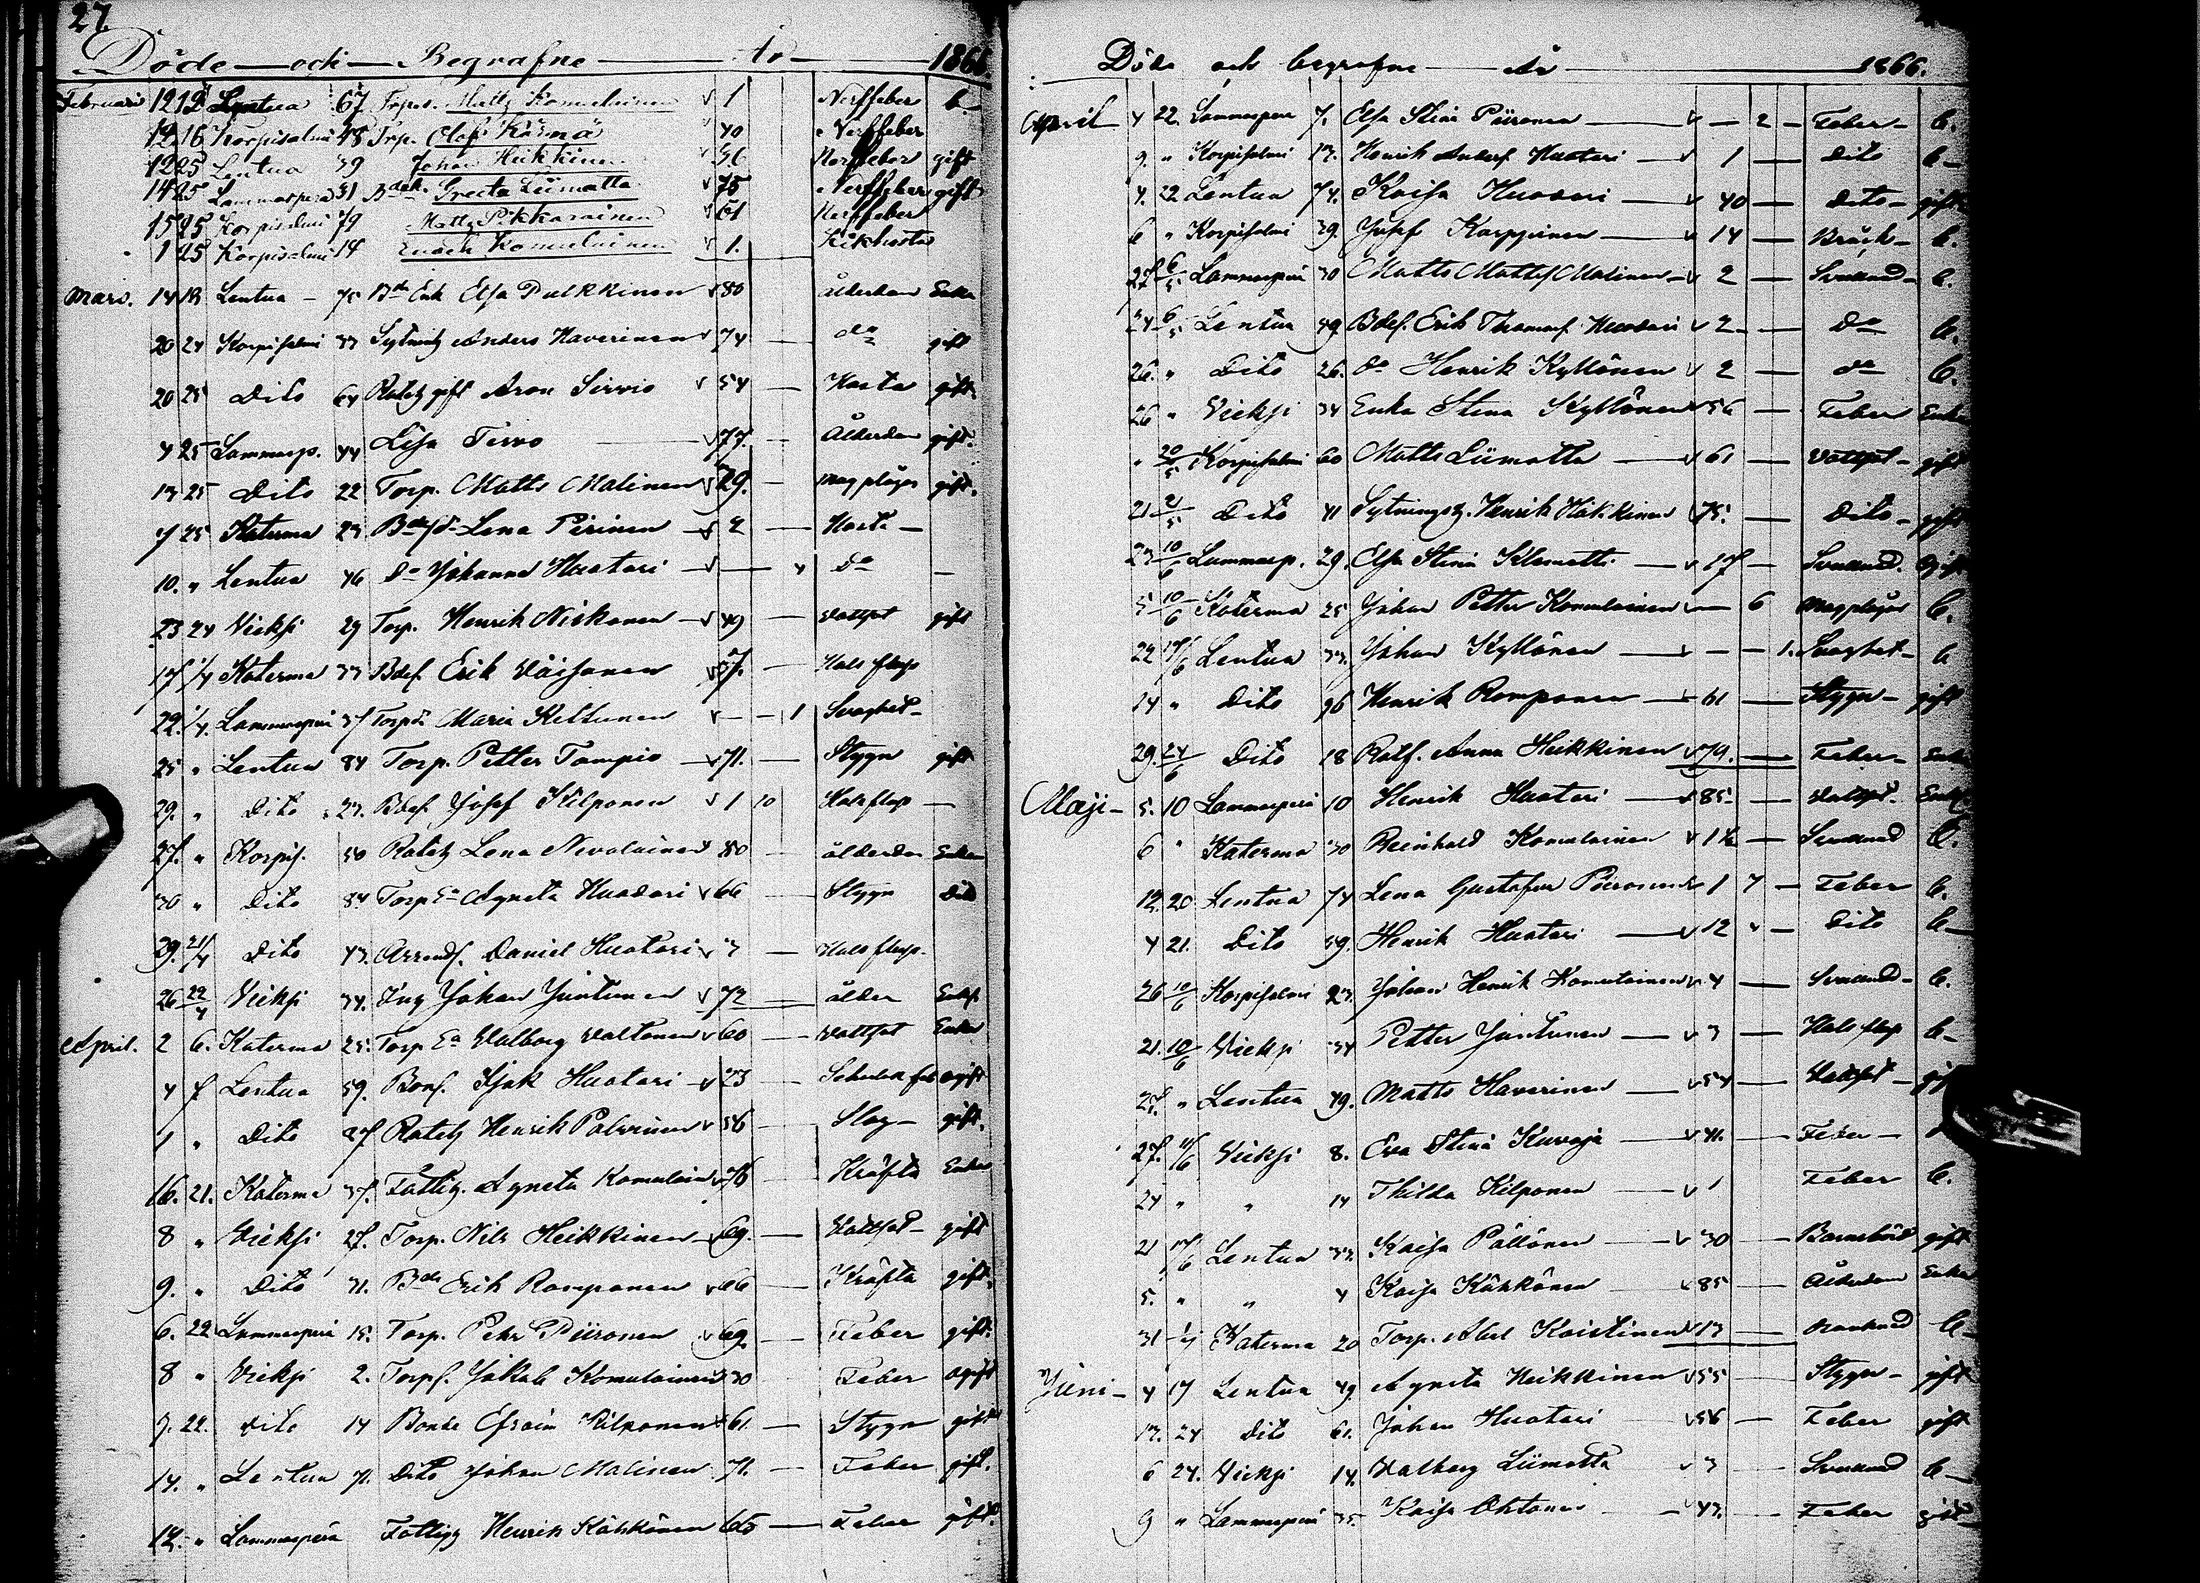 27.
Döde och Begrafne År 1866
Februari 12 18 Lentua 67 Torp. Matts Komulainen 1 Nerffeber b.
12 16 Korpisalmi 48 Torp. Olof Kärnä 40 Nerffeber
12 25 Lentua 39 Johan Heikkinen 36 Nerffeber gift
14 25 Lammasperä 31 Greeta Liimatta 75 Nerffeber gift
15 25 Korpisalmi 79 Matts Pikkarainen 61 Nerffeber
1 25 Korpisalmi 14 Enoch Komulainen 1. Kikhosta
Mars. 14 18 Lentua 75 Elsa Pulkkinen 80 ålderdom Enka
20 24 Korpisalmi 33 Sytning Anders Haverinen 74 do gift
20 25 Dito 64 Aron Sirvio 54 Hosta gift
4 25 Lammasp. 44 Lisa Tervo 77. Ålderdom gift.
13 25 Dito 22 Torp. Matts Malinen 29. Magplågor gift.
7 25 Katerma 23 Lena Piirinen 2 Hosta
10. " Lentua 46 Do Johanna Huotari 4 Do
23 24 Vieksi 29 Torp. Henrik Niskanen 49 Vattsot gift
17 1/4 Katerma 33 Bdes. Erik Väisänen 7. Halsfluss
29. 1/4. Lammasperä 37 Maria Keltunen 1 Svaghet
25 " Lentua 84 Torp. Petter Tampio 71. Stygn gift
29. " Dito 23. Bdes. Josef Kilponen 1 10 Halsflus
27. " Korpis. 50 Lena Nevalainen 80 ålderdom Enka
30 " Dito 84 Agneta Huotari 66 Stygn Dito
29. 21/4 Dito 43. Daniel Huotari 3 Halsflus.
26 22/4 Vieksi 34. Johan Juntunen 72 ålder
April. 2 6. Katerma 25. Torp Ea Walborg Valtonen 60 Vattsot Enka
4 7 Lentua 59. Bons. Isak Huotari 23 ogift
1 " Dito 27 Henrik Palviainen 56 Slag gift.
16. 21. Katerma 37. Fattig. Agneta Komulain 76 Kräfta Enka
8 " Vieksi 27. Torp. Nils Heikkinen 69. Vattsot gift
9. " Dito 31. Erik Romponen 66 Kräfta gift.
6. 22 Lammasperä 15. Torp. Pehr Piironen 69. Feber gift.
8 " Vieksi 2. Torps. Jakob Komulainen 30 Feber ogift
9. 22. Dito 14 Bonde Efraim Kilponen 61. Stygn gift
14. " Lentua 71. Dito Johan Malinen 71. Feber gift.
14. " Lammasperä Fattigg Henrik Kähkönen 65 Feber gift.
Döde och begrafne År 1866.
April 4 22. Lammaspera 7. Elsa Stina Piironen 2 Feber b.
9. " Korpisalmi 13. Henrik Anders. Huotari 1 Dito b
4. 22 Lentua 74. Kaisa Huotari 40 Dito gift
6 " Korpisalmi 39. Josef Karppinen 14 Bråck b.
27 6/5 Lammasperä 30 Matts Matts. Malinen 2 b.
24 6/5 Lentua 49 Bdes. Erik Thomas. Huotari 2 Do b.
26. " Dito 26. Do Henrik Kyllönen 2 do b.
26 " Vieksi 34 Enka Stina Kyllönen 56 Feber Enka
" 20/5 Korpisalmi 60 Matts Liimatta 61 Vattsot gift
21 2/5 Dito 41 Sytningsg. Henrik Häkkinen 75. Dito gift
23 10/6 Lammasp. 29. Elsa Stina Klemetti 17 ogift
5 10/6 Katerma 25 Johan Petter Komulainen 6 Magplågor b.
22 17/6 Lentua 33. Johan Kyllönen 1. Svaghet b
14 " Dito 96 Henrik Romponen 61 Stygn gift
29. 24/6 Dito 18 Anna Heikkinen 79. Feber Enka
Maji 5. 10 Lammasperä 10 Henrik Huotari 85 Vattsot.
6 " Katerma 30 Reinhold Komulainen b.
12. 20 Lentua 74 Lena Gustafva Piironen 1 7 Feber b.
4 21. Dito 59. Henrik Huotari 12 Dito b
26 10/6 Korpisalmi 23. Johan Henrik Komulainen 4 b.
21. 10/6 Vieksi 34 Petter Juntunen 3 Halsflus b
27. " Lentua 49. Matts Haverinen 54 Vattsot
27. 11/6 Vieksi 8. Eva Stina Kuvaja 41. Feber
24 " " 14 Thilda Kilponen 1 Feber b.
21 17/6 Lentua 33. Kaisa Pällönen 30 Barnsbörd gift
5. " " 4 Kaisa Kähkönen 85 Ålderdom Enka
31 Katerma 20 Torp. Abel Koistinen 13 b
Juni 4 17 Lentua 49 Agneta Heikkinen 55 Stygn gift
13. 24 Dito 61. Johan Huotari 56 Feber gift
6 24. Vieksi 14. Walborg Liimatta 3 b
9 " Lammasperä 35. Kaisa Ohtonen 43. Feber gift